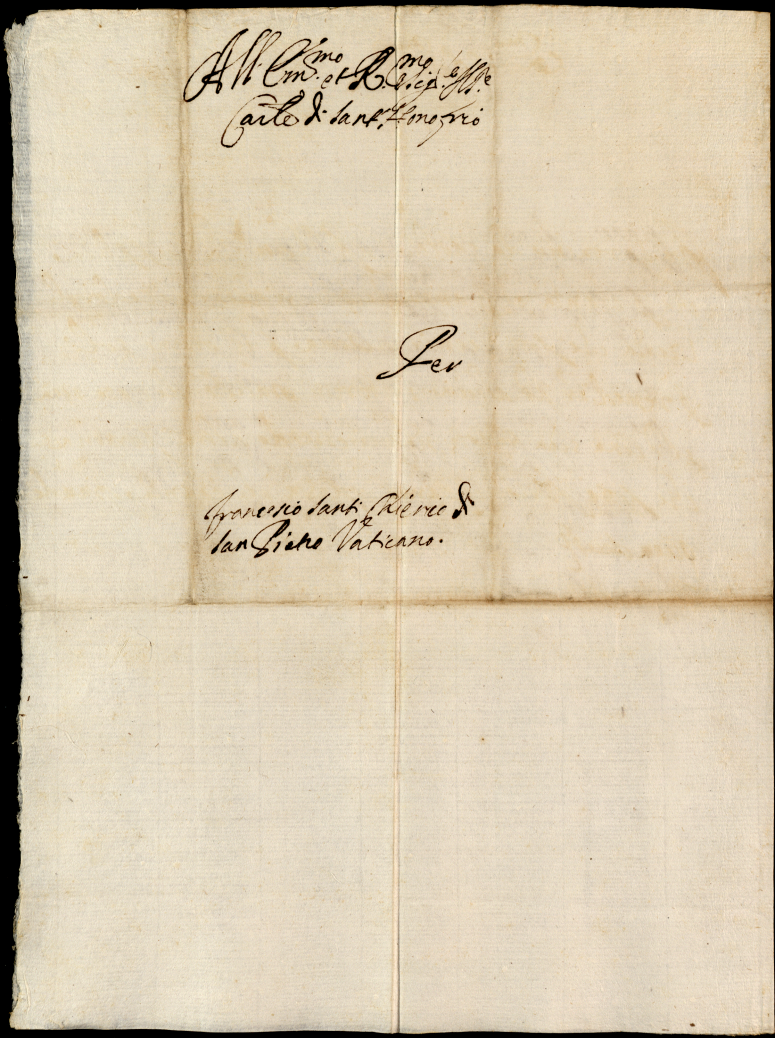 All' Em.mo et R.mo Sig.re
Car.le di Sant' Honofrio
Per
Francesco Santi Chieric di
San Pietro Vaticano.